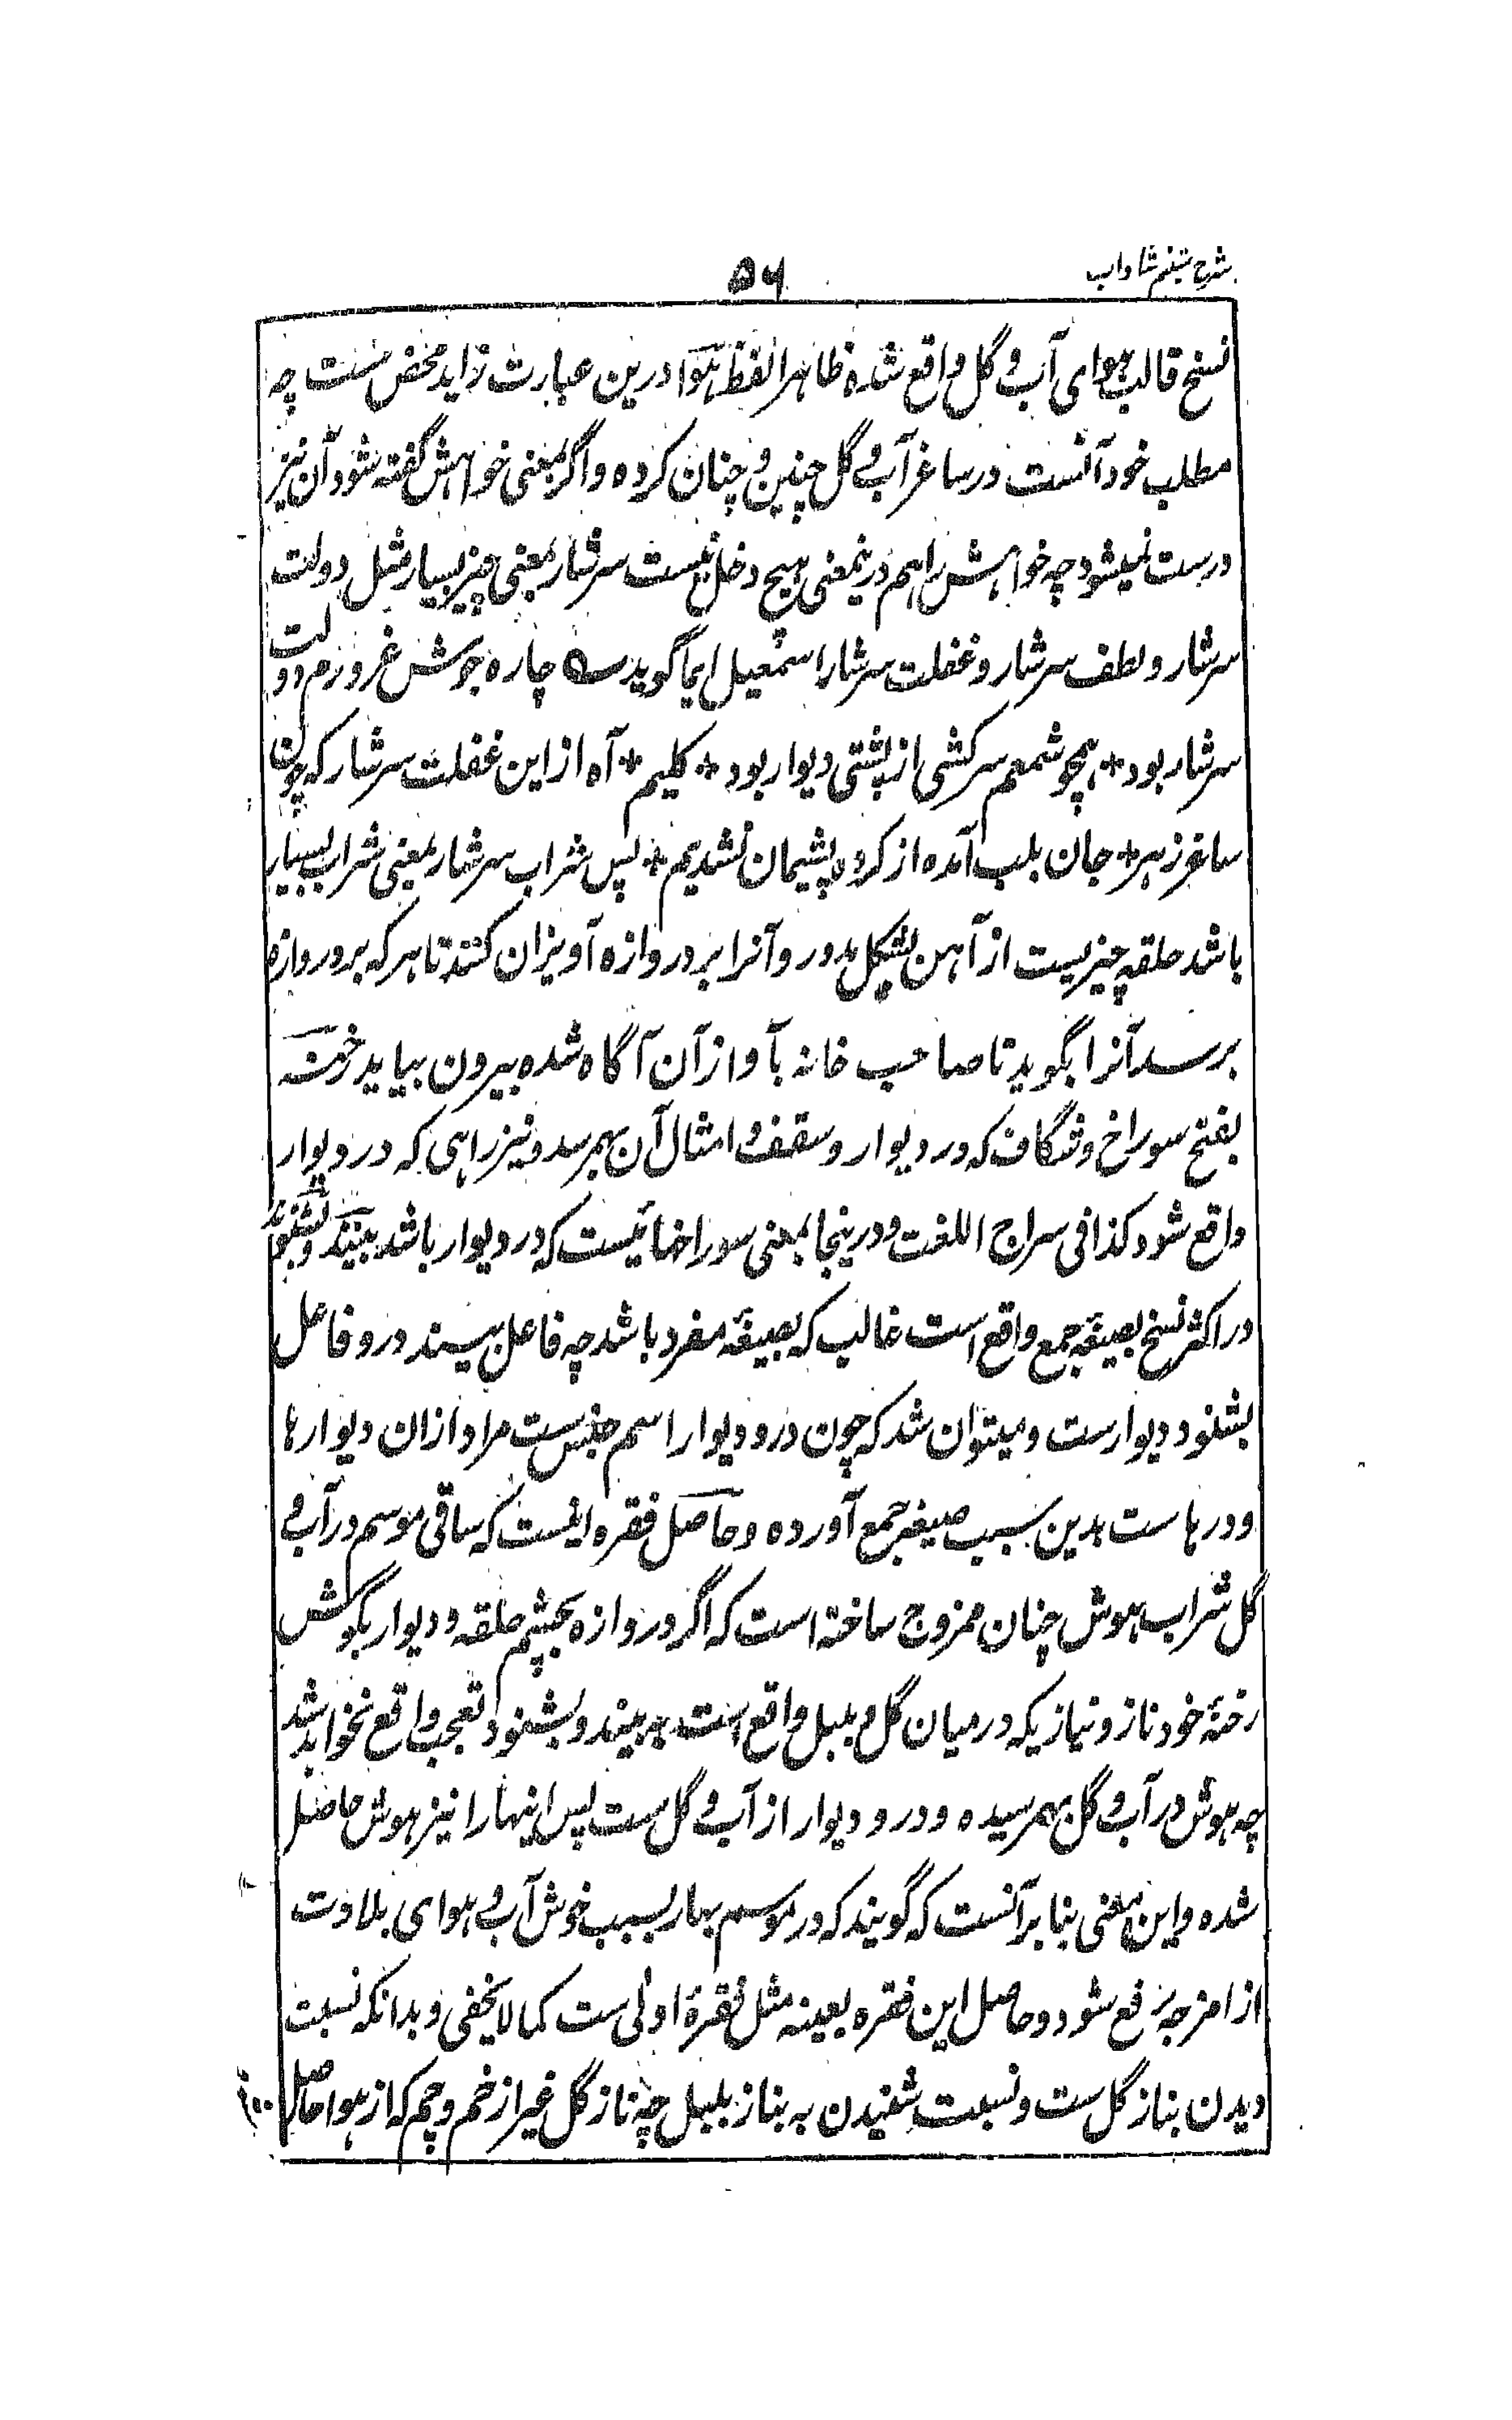 شرح شبنم شاداب
۵۶
نسخ قالب ہوای آب و گل واقع شدہ ظاہرا لفظ ہوا درین عبارت زاید محض ست چہ
مطلب خود آنست در ساغر آب و گل چنین و چنان کردہ و اگر بمعنی خواہش گفتہ شود آن نیز
درست نمیشود چہ خواہش را ہم درینمعنی ہیچ دخل نیست سرشار بمعنی چیز بسیار مثل دولت
سرشار و لطف سرشار و غفلت سرشار اسمعیل ایما گوید ؎ چارہ جوش غرورم دولت
سرشار بود * ہمچو شمعم سرکشی از پشتی دیوار بود * کلیم * آہ از این غفلت سرشار کہ چون
ساغر زہر * جان بلب آمدہ از کردہ پشیمان نشدیم * پس شراب سرشار بمعنی شراب بسیار
باشد حلقہ چیزیست از آہن بشکل مدور و آنرا بر دروازہ آویزان کنند تا ہر کہ بر دروازہ
برسد آنرا بگوید تا صاحب خانہ بآواز آن آگاہ شدہ بیرون بیاید رخنہ
بفتح سوراخ و شگاف کہ در دیوار و سقف و امثال آن بہمرسد و نیز راہی کہ در دیوار
واقع شود کذا فی سراج اللغت و درینجا بمعنی سوراخہائیست کہ در دیوار باشد بینند و بشنوند
در اکثر نسخ بصیغہ جمع واقع است غالب کہ بصیغۂ مفرد باشد چہ فاعل بیند در و فاعل
بشنود دیوارست و میتوان شد کہ چون در و دیوار اسم جنس ست مراد ازان دیوارہا
و درہاست بدین سبب صیغہ جمع آوردہ و حاصل فقرہ اینست کہ ساقی موسم در آب و
گل شراب ہوش چنان ممزوج ساختہ است کہ اگر دروازہ بچشم حلقہ و دیوار بگوش
رخنۂ خود ناز و نیازیکہ درمیان گل و بلبل واقع است بہ بیند و بشنود تعجب واقع نخواہد شد
چہ ہوش در آب و گل بہمرسیدہ و در و دیوار از آب و گل ست پس اینہا را نیز ہوش حاصل
شدہ و این معنی بنا بر آنست کہ گویند کہ در موسم بہار بسبب خوش آب و ہوای بلادت
از امزجہ رفع شود و حاصل این فقرہ بعینہ مثل فقرۂ اولی ست کما لا یخفی و بدانکہ نسبت
دیدن بناز گل ست و نسبت شنیدن بہ بناز بلبل چہ ناز گل غیر از خم و چم کہ از ہوا حاصل